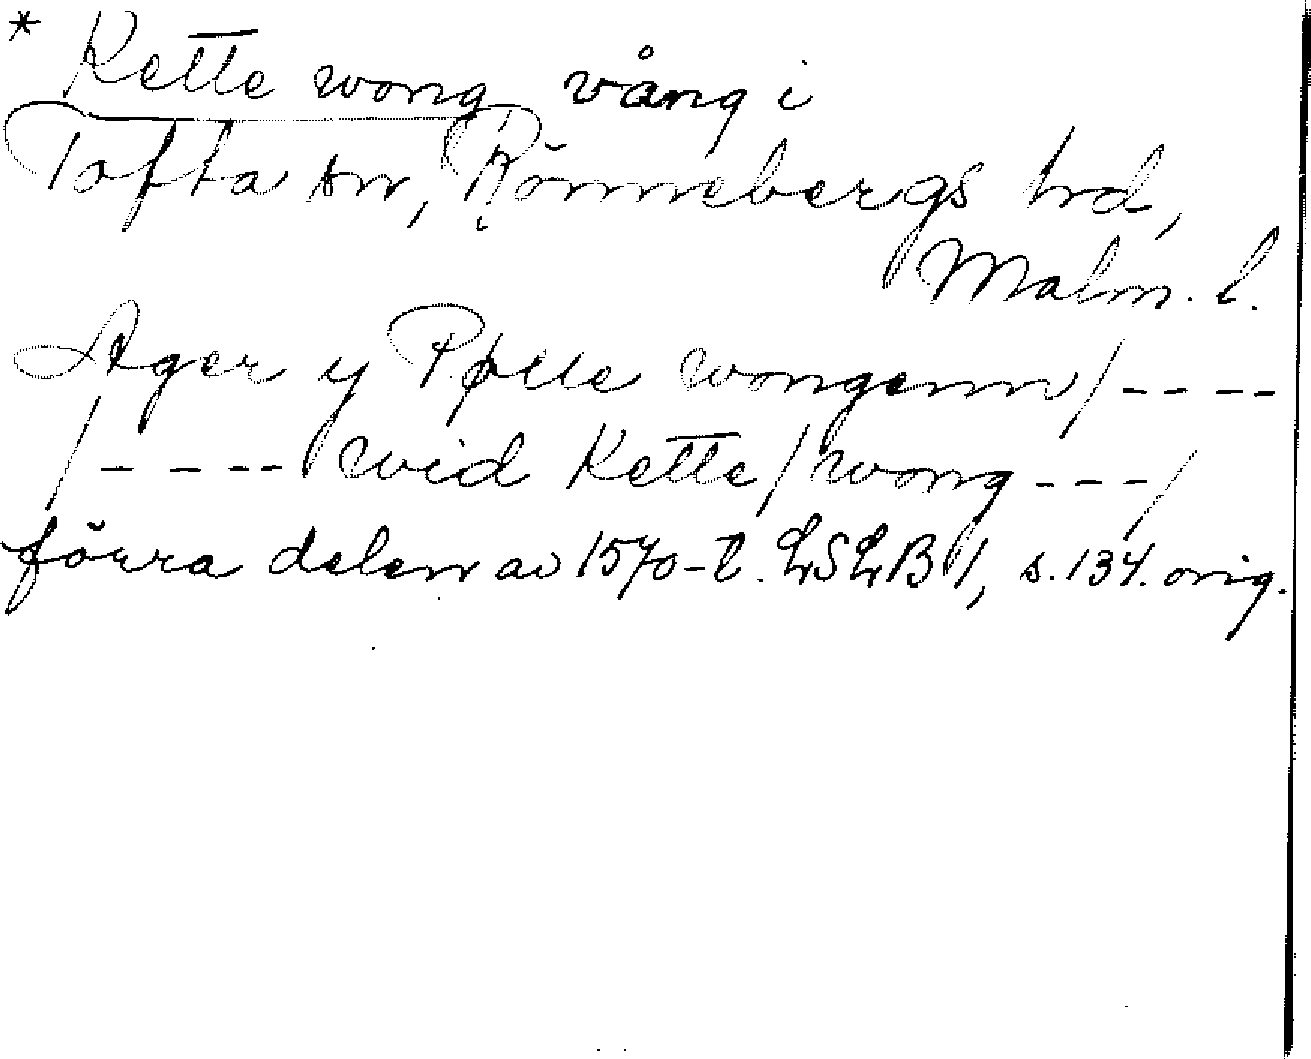 * Kette wong vång i
Tofta sn, Rönnebergs hd,
Malm. l.
Ager y Pølle wongenn / ----
/ ---- wid Kette / wong --- /
förra delen av 1570-t. LSLB 1, s. 134. orig.